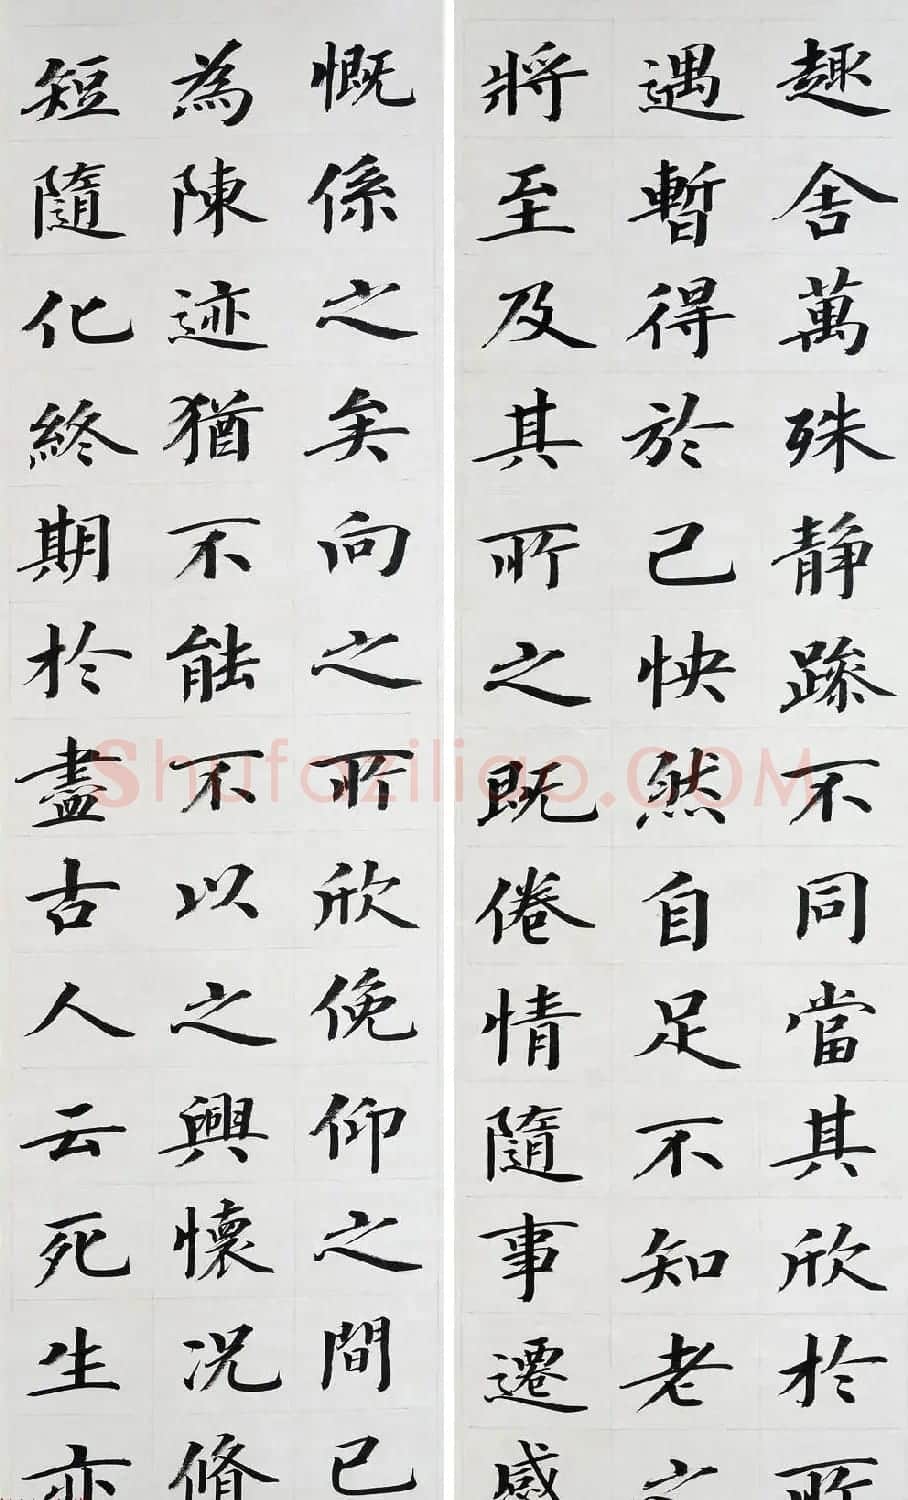 趣舍萬殊静踈不同當其欣於所
遇暫得於己怏然自足不知老之
將至及其所之既倦情隨事遷感
慨係之矣向之所欣俛仰之間已
為陳迹猶不能不以之興懷况脩
短隨化終期於盡古人云死生亦
Shufaziliao.COM